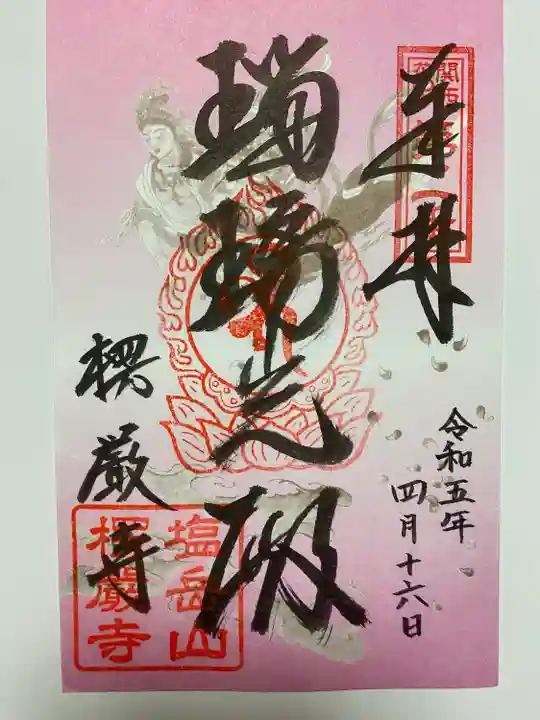 奉拝
関西
令和五年
四月十六日
瑠璃光殿
楞厳寺
塩岳山
楞嚴寺